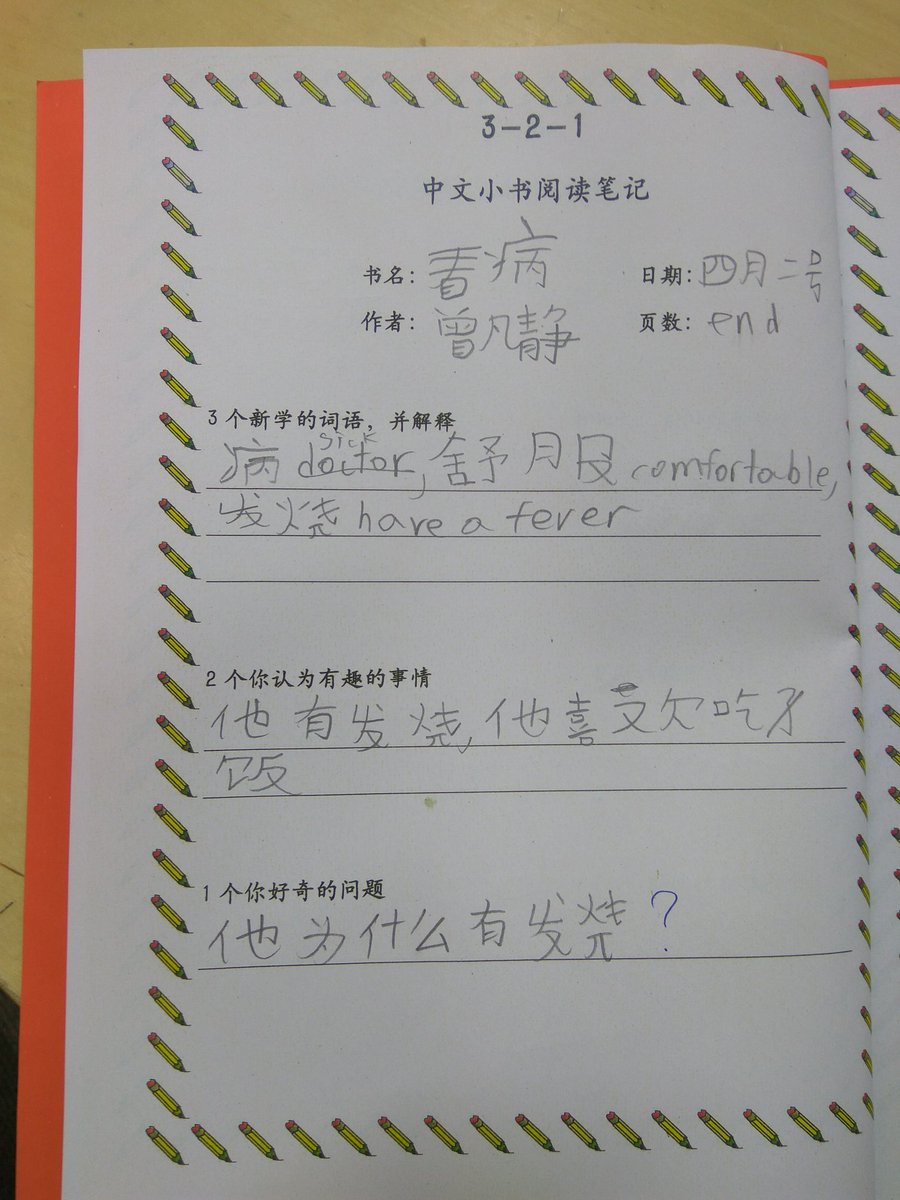 3-2-1
中文小书阅读笔记
书名：看病 日期：四月二号
作者：曾凡静 页数：end
3个新学的词语，并解释
sick
病 doctor, 舒服 comfortable,
发烧 have a fever
2个你认为有趣的事情
他有发烧, 他喜欢吃牙
饭
1个你好奇的问题
他为什么有发烧?